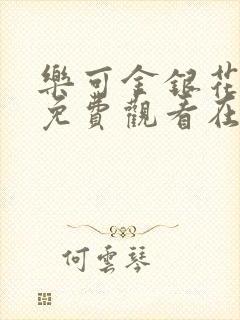 樂可金銀花
免費觀看在
何雲琴